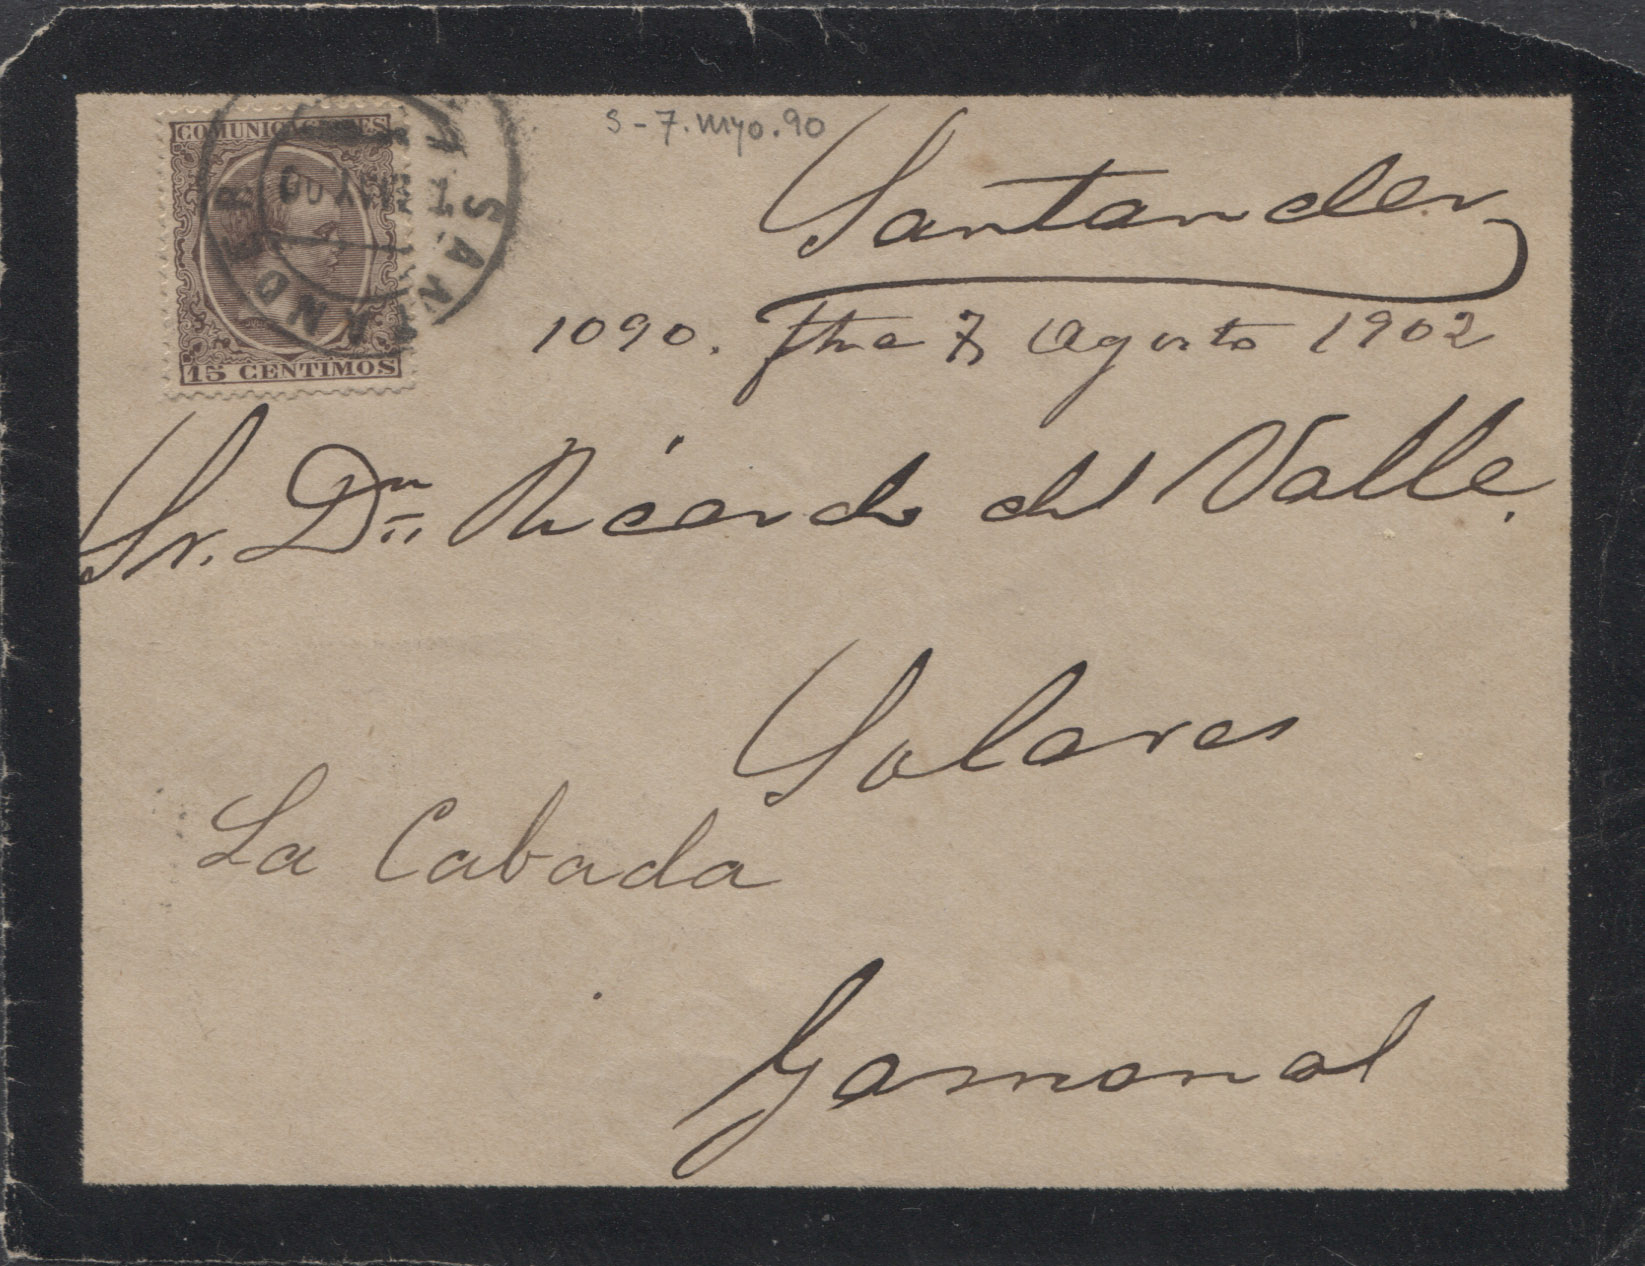 COMUNICACIONES
15 CENTIMOS
SANTANDER
S-7.Myo.90
Santander
1090. fha 7 Agosto 1902
Sr. Dn Ricardo del Valle.
Solares
La Cabada
Gamonal